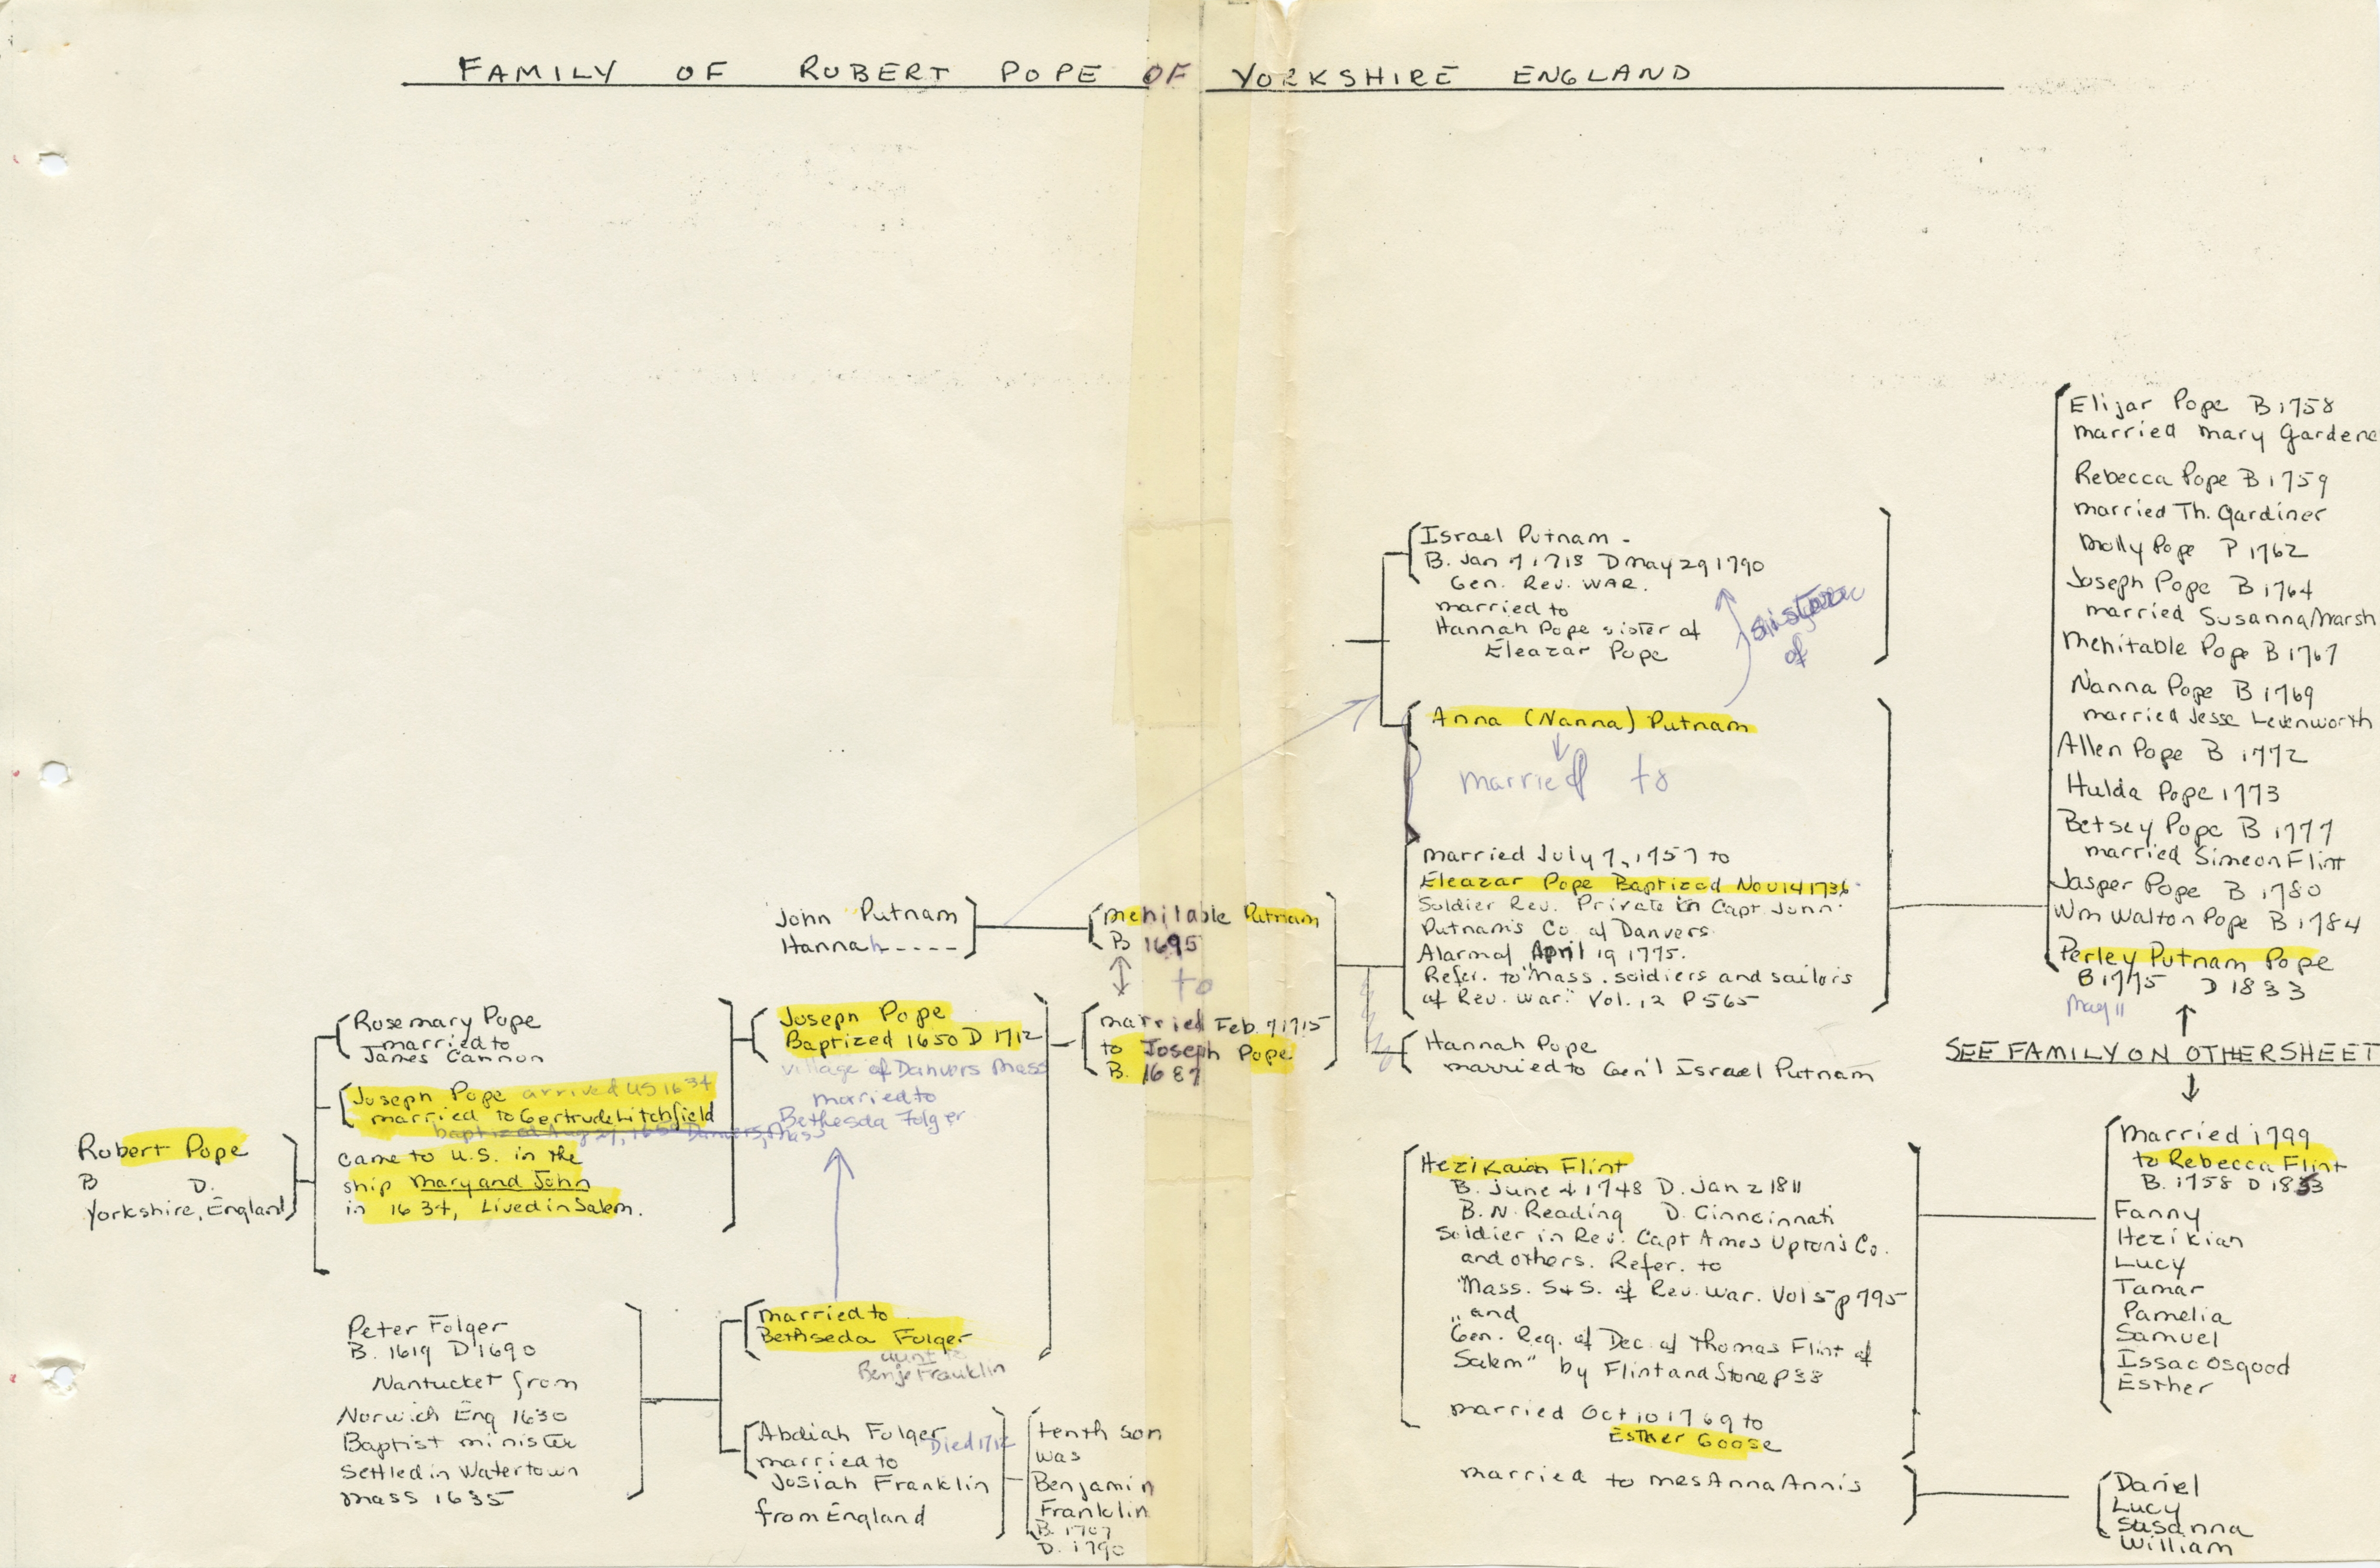 FAMILY OF ROBERT POPE OF YORKSHIRE ENGLAND
Robert Pope
B D.
Yorkshire, England
Rosemary Pope
married to
James Cannon
Joseph Pope arrived US 1634
married to Gertrude Litchfield
baptized Aug 27, 1650 Danvers, Mass
came to U.S. in the
ship Mary and John
in 1634, Lived in Salem.
Peter Folger
B. 1619 D 1690
Nantucket from
Norwich Eng 1630
Baptist minister
Settled in Watertown
Mass 1635
John Putnam
Hannah ----
Joseph Pope
Baptized 1650 D 1712
village of Danvers Mass
married to
Bethesda Folger
married to
Bethseda Fulger
aunt to
Benj Franklin
Abdiah Fulger Died 1712
married to
Josiah Franklin
from England
tenth son
was
Benjamin
Franklin
B. 1707
D. 1790
Mehitable Putnam
B 1695
to
married Feb. 7 1715
to Joseph Pope
B. 1687
Israel Putnam -
B. Jan 7 1718 D May 29 1790
Gen. Rev. WAR.
married to
Hannah Pope sister of
Eleazar Pope
sister
of
Anna (Nanna) Putnam
married to
married July 7, 1757 to
Eleazar Pope Baptized Nov 14 1736
Soldier Rev. Private in Capt John
Putnam's Co of Danvers
Alarm of April 19 1775.
Refer. to "Mass. soldiers and sailors
of Rev. War." Vol. 12 P 565
Hannah Pope
married to Gen'l Israel Putnam
Hezikaiah Flint
B. June 4 1748 D. Jan 2 1811
B. N. Reading D. Cinncinnati
Soldier in Rev. Capt Ames Upton's Co.
and others. Refer. to
"Mass. S+S. of Rev. War. Vol 5 p 795
" and
Gen. Reg. of Dec. of Thomas Flint of
Salem" by Flint and Stone p 38
married Oct 10 1769 to
Esther Goose
married to Mrs Anna Annis
Elijar Pope B 1758
married Mary Gardene
Rebecca Pope B 1759
married Th. Gardiner
Molly Pope P 1762
Joseph Pope B 1764
married Susanna Marsh
Mehitable Pope B 1767
Nanna Pope B 1769
married Jesse Levenworth
Allen Pope B 1772
Hulda Pope 1773
Betsey Pope B 1777
married Simeon Flint
Jasper Pope B 1780
Wm Walton Pope B 1784
Perley Putnam Pope
B 1775 D 1833
May 11
SEE FAMILY ON OTHER SHEET
Married 1799
to Rebecca Flint
B. 1758 D 1853
Fanny
Hezikian
Lucy
Tamar
Pamelia
Samuel
Issac Osgood
Esther
Daniel
Lucy
Susanna
William